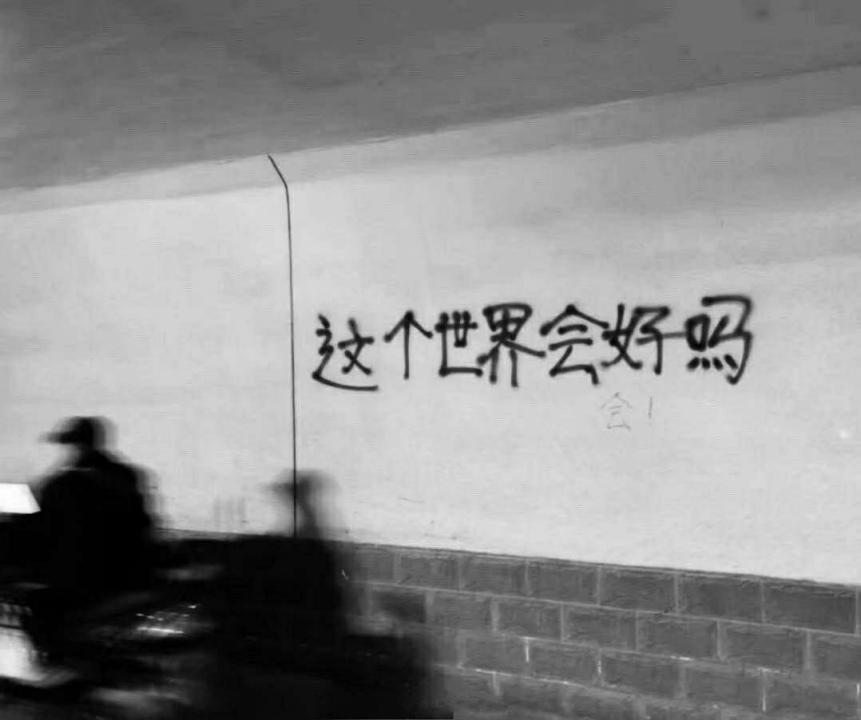 这个世界会好吗
会!